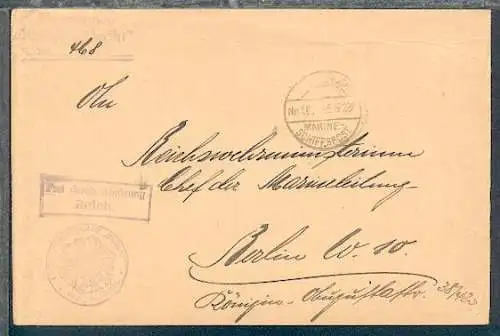 468
An
Reichswehrministerium
Chef der Marineleitung
Berlin W. 10.
Königin-Augustastr. 38/42
MARINE-
SCHIFFSPOST
Frei durch Ablösung
Reich.